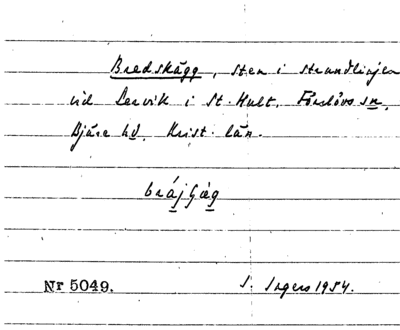 Bredskägg, sten i strandlinjen
vid Lervik i St. Hult, Förslövs sn,
Bjäre hd, Krist. län.
Nr 5049. S. Ingers 1954.